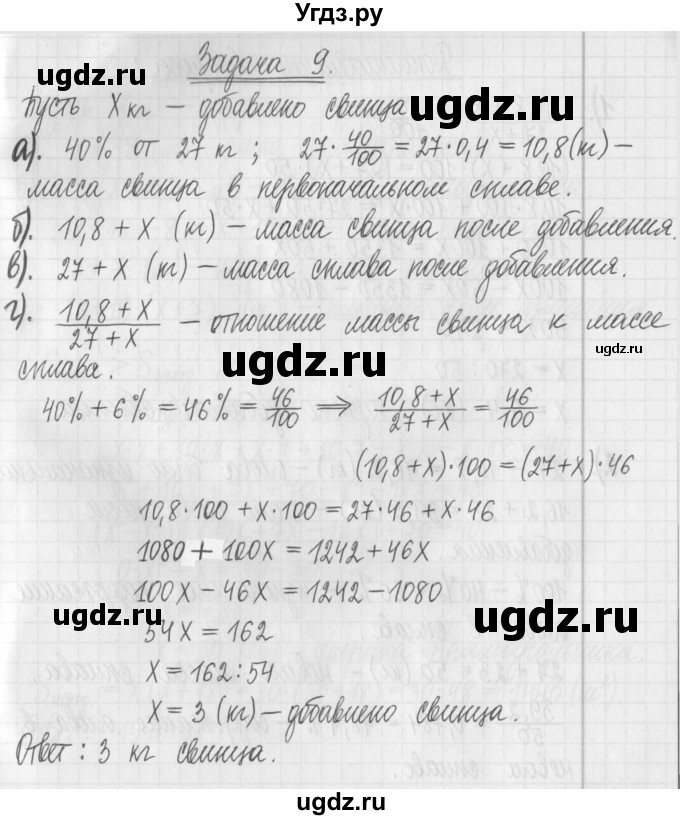 Угдз.ру
Задача 9.
Пусть X кг — добавлено свинца
а). 40% от 27 кг ; 27 · 40/100 = 27 · 0,4 = 10,8 (кг) —
масса свинца в первоначальном сплаве.
б). 10,8 + X (кг) — масса свинца после добавления.
в). 27 + X (кг) — масса сплава после добавления.
г). (10,8 + X)/(27 + X) — отношение массы свинца к массе
сплава.
40% + 6% = 46% = 46/100 ⟹ (10,8 + X)/(27 + X) = 46/100
(10,8 + X) · 100 = (27 + X) · 46
10,8 · 100 + X · 100 = 27 · 46 + X · 46
1080 + 100X = 1242 + 46X
100X − 46X = 1242 − 1080
54X = 162
X = 162 : 54
X = 3 (кг) — добавлено свинца.
Ответ : 3 кг свинца.
ugdz.ru
ugdz.ru
ugdz.ru
ugdz.ru
ugdz.ru
ugdz.ru
ugdz.ru
ugdz.ru
ugdz.ru
ugdz.ru
ugdz.ru